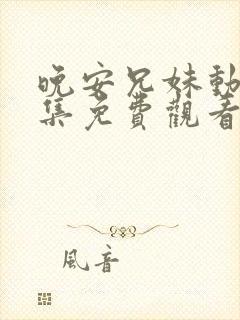 晚安兄妹動
集免費觀看
風音